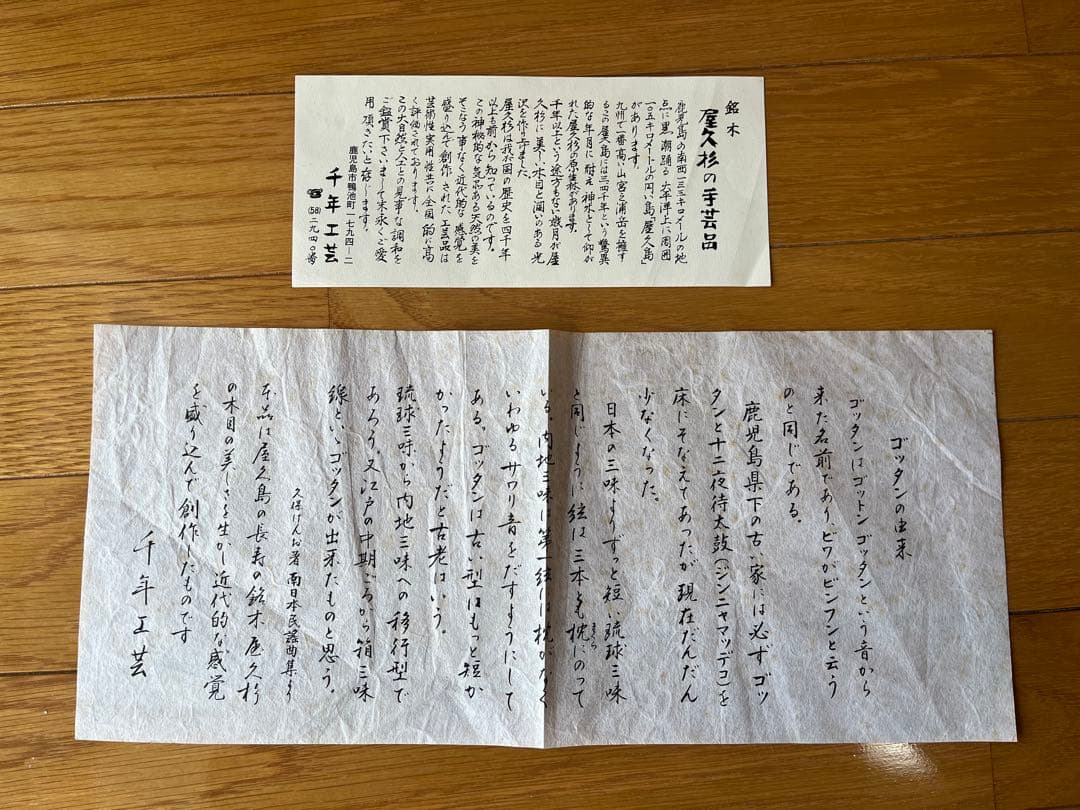 銘木
屋久杉の手芸品
鹿児島の南西一三三キロメールの地
点に黒潮踊る太平洋上に周囲
一〇五キロメートルの円い島「屋久島」
があります。
九州で一番高い山宮之浦岳を擁す
るこの屋久島には三四千年という驚異
的な年月に耐え神木として仰が
れた屋久杉の原生林があります。
千年以上という途方もない歳月が屋
久杉に美しい木目と潤いのある光
沢を作り上げました。
屋久杉は我が国の歴史を四千年
以上も前から知っているのです。
この神秘的な気品ある天然の美を
そこなう事なく近代的な感覚を
盛り込んで創作された工芸品は
芸術性実用性共に全国的に高
く評価されております。
この大自然と人工との見事な調和を
ご鑑賞下さいまして末永くご愛
用頂きたいと存じます。
鹿児島市鴨池町一七九四ー二
千年工芸
☎(58)二九四〇番
ゴッタンの由来
ゴッタンはゴットンゴッタンという音から
来た名前であり、ビワがビンフンと云う
のと同じである。
鹿児島県下の古い家には必ずゴッ
タンと十二夜待太鼓(ジンニャマッデコ)を
床にそなえてあったが現在だんだん
少なくなった。
日本の三味よりずっと短い琉球三味
と同じように絃は三本とも枕にのって
まくら
いる。内地三味は第一絃は枕がなく
いわゆるサワリ音をだすようにして
ある。ゴッタンは古い型はもっと短か
かったようだと古老はいう。
琉球三味から内地三味への移行型で
あろう。又江戸の中期ごろから箱三味
線といゝゴッタンが出来たものと思う。
久保けんお著 南日本民謡曲集より
本品は屋久島の長寿の銘木屋久杉
の木目の美しさを生かし近代的な感覚
を盛り込んで創作したものです
千年工芸